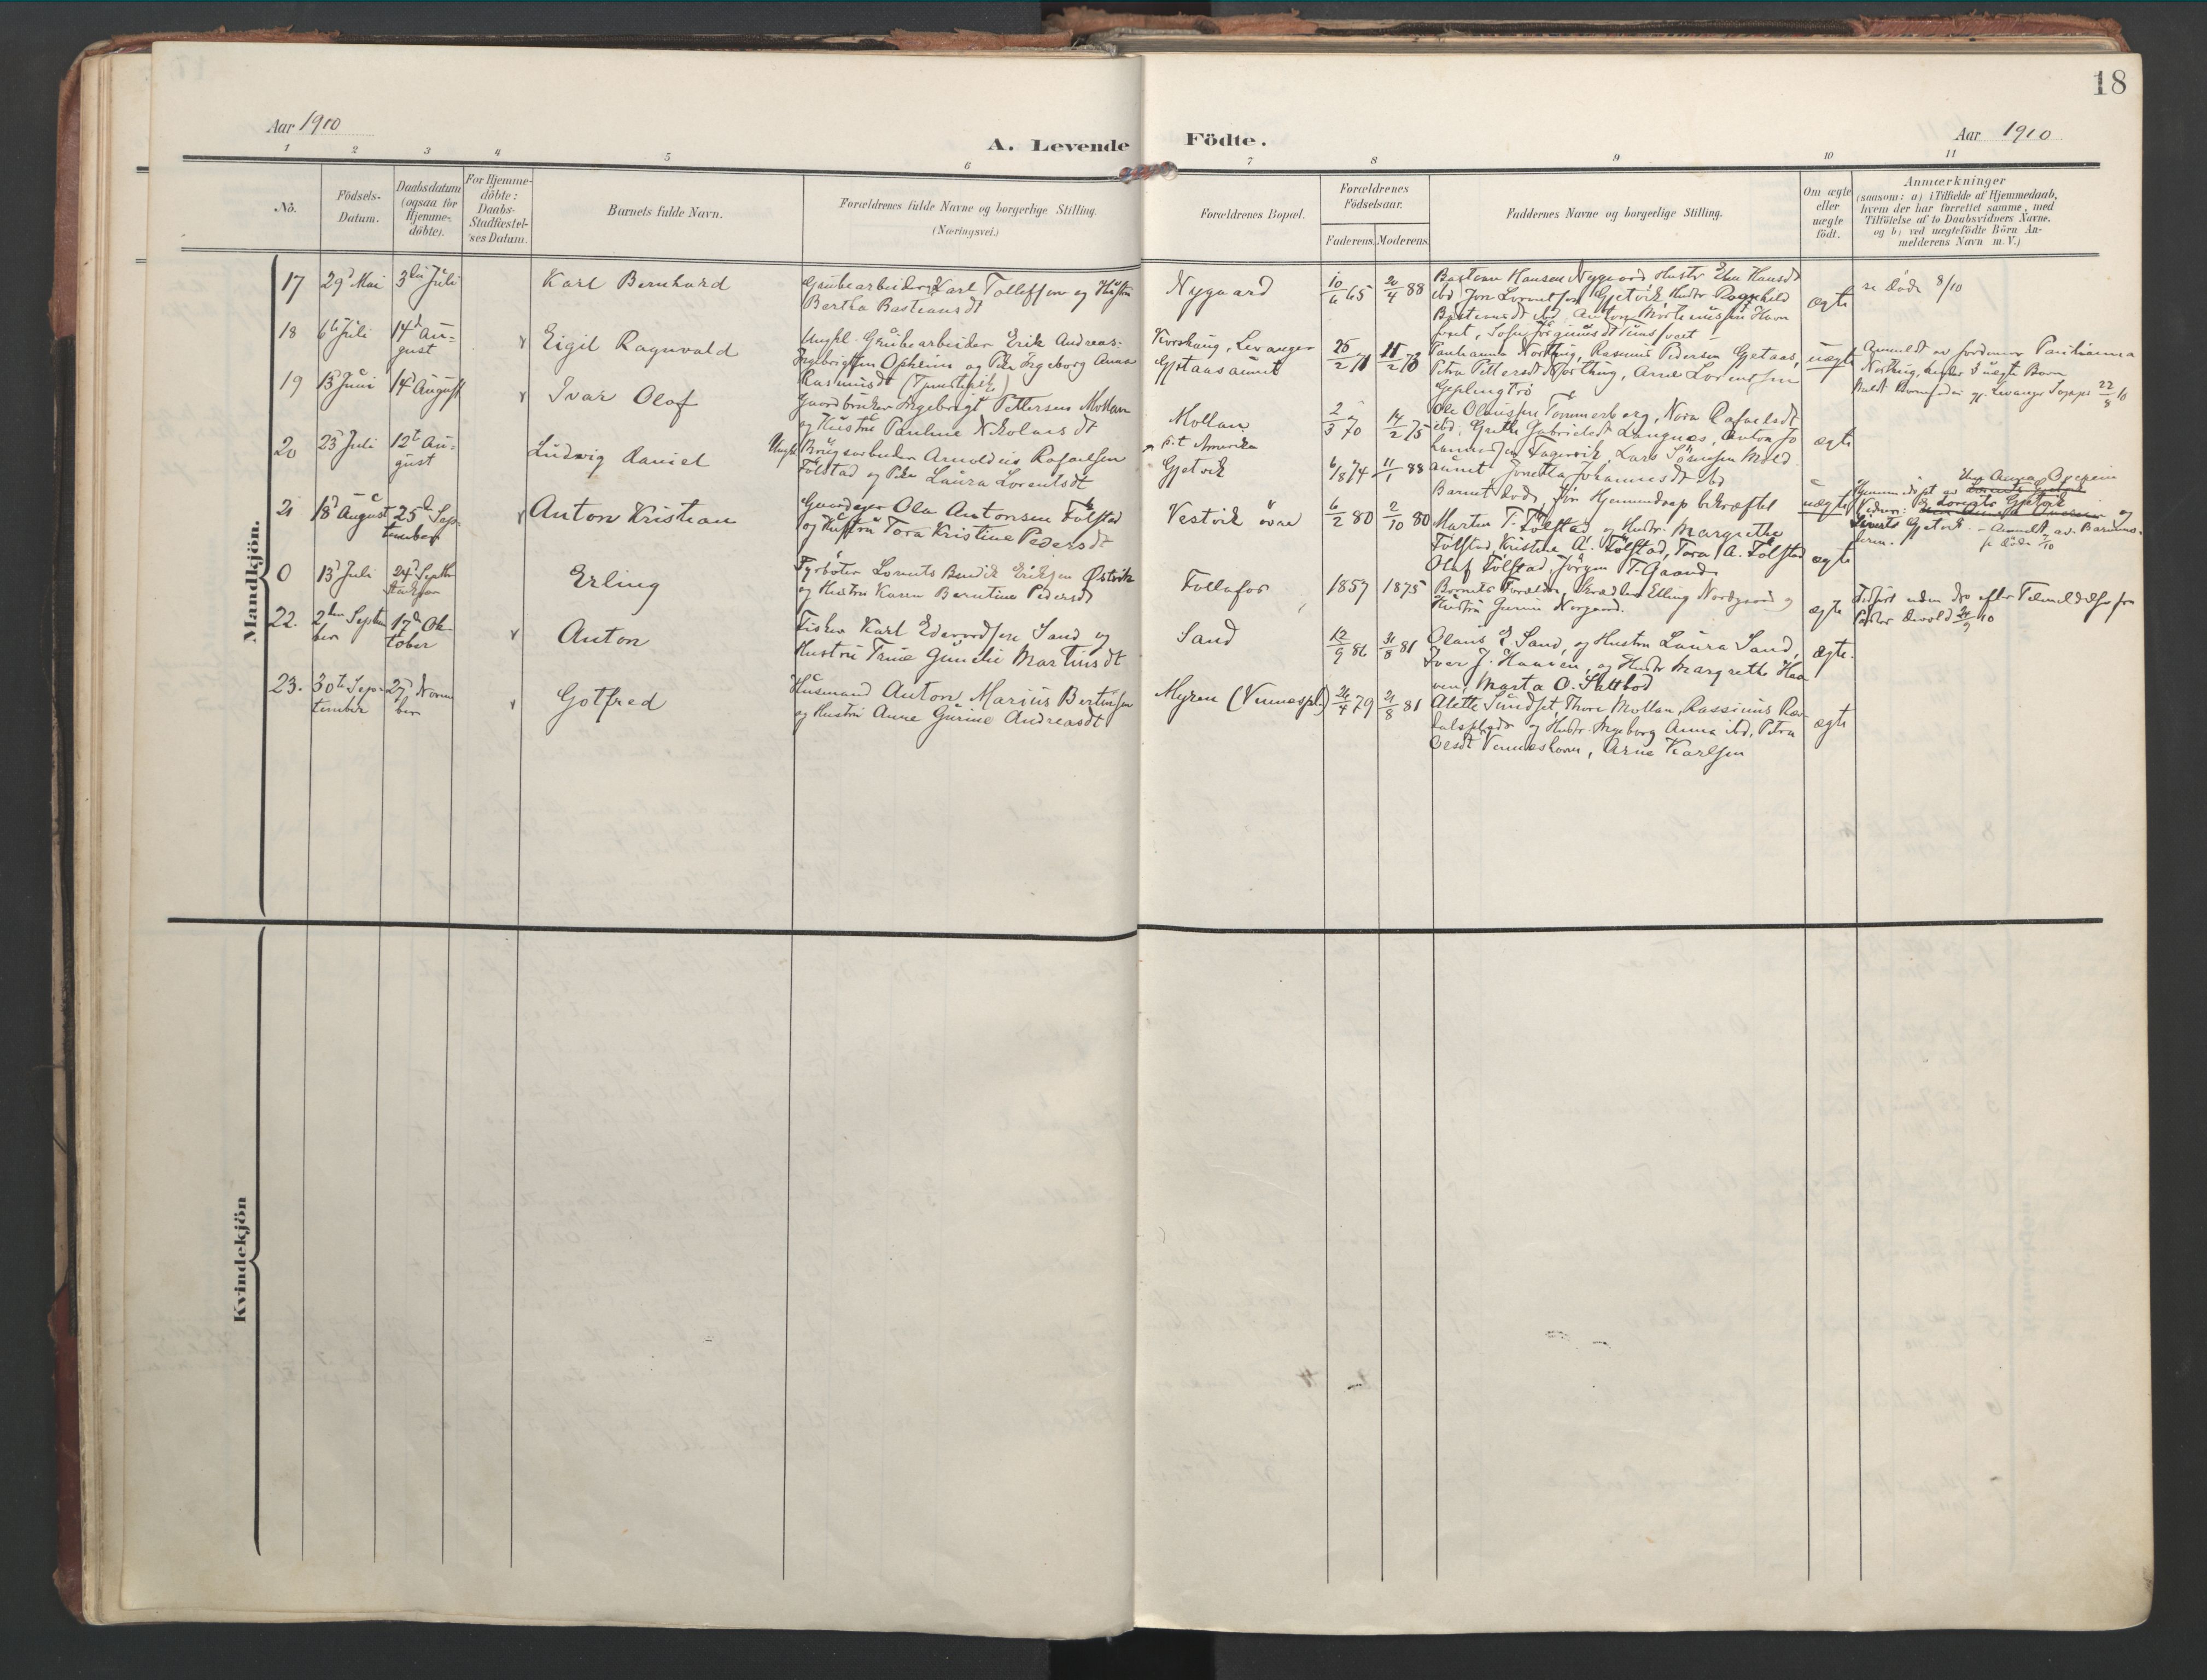 18
Aar 1910
A. Levende Födte.
Aar 1910
1 2 3 4 5 6 7 8 9 10 11
Nô.
Födsels-
Datum.
Daabsdatum
(ogsaa for
Hjemme-
döbte).
For Hjemme-
döbte:
Daabs-
Stadfæstel-
ses Datum.
Barnets fulde Navn.
Forældrenes fulde Navne og borgerlige Stilling.
(Næringsvei.)
Forældrenes Bopæl.
Forældrenes
Födselsaar.
Faderens. Moderens.
Faddernes Navne og borgerlige Stilling.
Om ægte
eller
uægte
födt.
Anmærkninger
(saasom: a) i Tilfælde af Hjemmedaab,
hvem der har forrettet samme, med
Tilföielse af to Daabsvidners Navne.
og b) ved uægtefödte Börn An-
melderens Navn m. V.)
Mandkjön.
17 29d Mai 3die Juli Karl Bernhard
Grubearbeider Karl Tolleffsen og Hustru
Bertha Bastiansdt
Nygaard
10/6 65 20/4 88
Bastian Hansen Nygaard Hustr Elen Hansdt
ibd, Jon Lorentsen Gjetvik, Hustr Ragnhild
Bastiansdt ibd, Anton Mortenussen Havn
ægte
se døde 8/10
18 6te Juli 14d Au-
gust
Eigil Ragnvald
Ungkl. Grubearbeider Erik Andreas
Ingebrigtsen Opheim og Pike Ingeborg Anna
Rasmusdt (Tjenestepike)
Korskaug, Levanger
Gjetaasaunet
25/2 71
Paulianna Northug, Rasmus Pedersen Gjetaas,
Petra Pettersdt Northug, Arne Lorentsen
uægte
Anmeldt av Jordemor Paulianna
Northug, 
19 13 Juni 14d August Ivar Olaf
Gaardbruker Ingebrigt Pettersen Mollan
og Hustru Pauline Nikolaisdt
Mollan
2/3 70 14/2 75
Ole Olaussen Tømmerberg, Nora Rafaelsdt
ibd, Grethe Gabrielsdt Langnes, Anton Jo-
hannessen Fagervik, Lars Sørensen Mold-
aunet, Jonetta Johannesdt ibd
ægte
20 23d Juli 12te Au-
gust
Ludvig Daniel
Ungkl Brugsarbeider Arnoldus Rafaelsen
Følstad og Pike Laura Lorentsdt
p. t. Amerika
Gjetvik
6/8 74 11/1 88
Barnet død, før Hjemmedaap bekræftet
uægte
Hjemmedøpt av Anna Opheim
Vidner: Lorents Gjetvik og
Sivert Gjetvik. - Anmeldt av Barnemo-
deren.
21 18d August 25de Sep-
tember
Anton Kristian
Gaardeier Ola Antonsen Følstad
og Hustru Tora Kristine Pedersdt
Vestvik øvre
6/2 80 2/10 80
Martin T. Følstad og Hustr. Margrethe
Følstad, Kristine A. Følstad, Tora A. Følstad
Olaf Følstad, Jørgen T. Gaande
ægte
0 13d Juli 24d Septbr
Erling
Fyrbøter Lorents Bendik Eriksen Østvik
og Hustru Karen Berntine Pedersdt
Follafos
1857 1875
Barnets Forældre, Skrædder Elling Nordgaard og
Hustru Gurine Norgaard.
ægte
Indført uden No efter Tilmeldelse fra
Pastor Devold 26/9 10
22. 2den Septem
ber
17d Ok-
tober
Anton
Fisker Karl Edvardsen Sand og
Hustru Trine Gunelie Martinsdt
Sand
12/9 86 31/8 81
Olaus E. Sand, og Hustru Laura Sand,
Iver J. Haaven, og Hustr Margrethe Haa-
ven, Marta O. Slettbod
ægte.
23. 30te Sep-
tember
27d Novem
ber
Gotfred
Husmand Anton Marius Bertinsen
og Hustru Anne Gurine Andreasdt
Myren (Vennespl.)
26/4 79 21/8 81
Alette Sundset, Thore Mollan, Rassinus Ra-
og Hustr. Ingeborg Anna ibd, Petra
Olesdt Venneshavn, Arne Karlsen
ægte
Kvindekjön